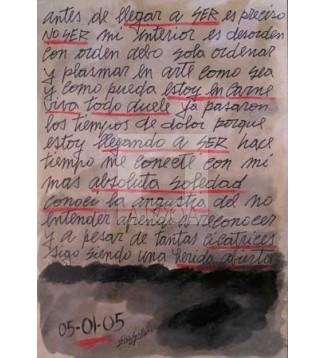 antes de llegar a SER es preciso
NO SER mi interior es desorden
con orden debo sola ordenar
y plasmar en arte como sea
y como pueda estoy en carne
viva todo duele ya pasaron
los tiempos de dolor porque
estoy llegando a SER hace
tiempo me conecté con mi
mas absoluta soledad
conocí la angustia del no
entender aprendí a reconocer
y a pesar de tantas cicatrices
sigo siendo una herida abierta
05-01-05